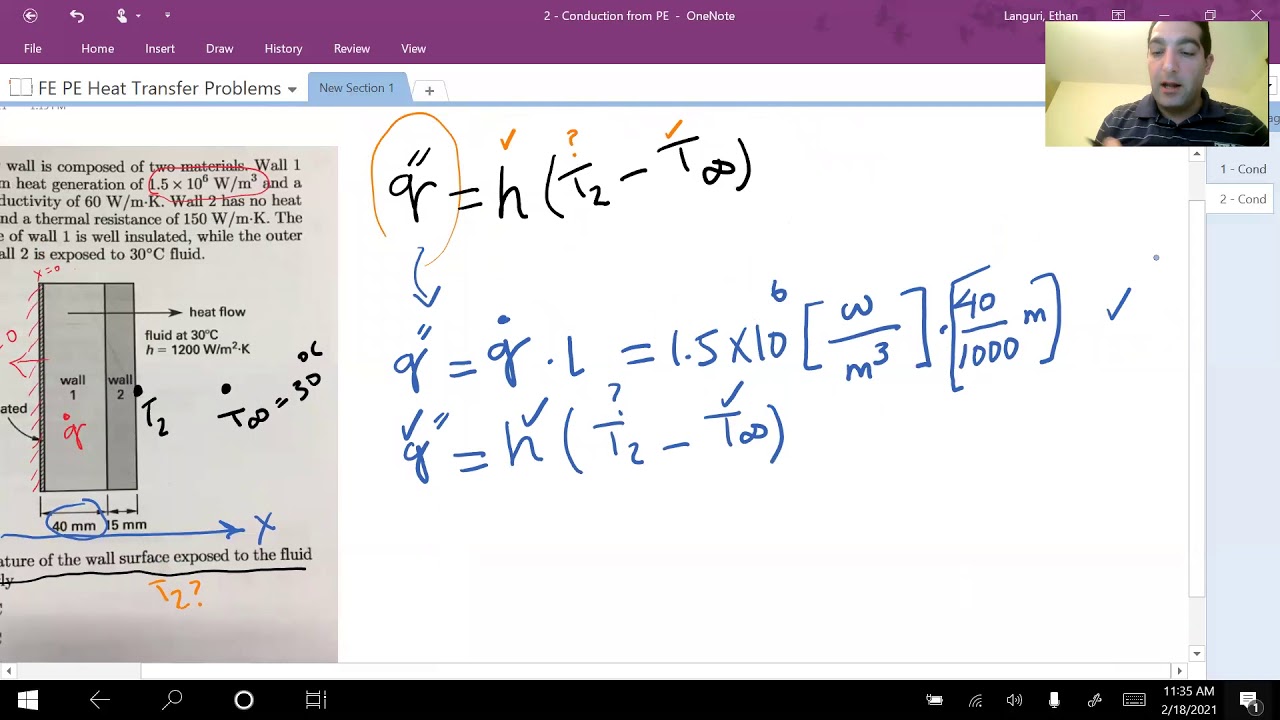 2 - Conduction from PE - OneNote
Languri, Ethan
File Home Insert Draw History Review View
FE PE Heat Transfer Problems
New Section 1
+
1 - Cond
2 - Cond
wall is composed of two materials. Wall 1
m heat generation of 1.5 × 10⁶ W/m³ and a
ductivity of 60 W/m·K. Wall 2 has no heat
nd a thermal resistance of 150 W/m·K. The
e of wall 1 is well insulated, while the outer
all 2 is exposed to 30°C fluid.
x=0
heat flow
fluid at 30°C
h = 1200 W/m²·K
0
wall
1
wall
2
ated
q̇
T₂
T∞ = 30 °C
40 mm
15 mm
X
ature of the wall surface exposed to the fluid
ly
T₂?
q″ = h (T₂ − T∞)
✓ ? ✓
q″ = q̇ · L = 1.5 × 10⁶ [W/m³] · [40/1000 m] ✓
✓ ✓ ? ✓
q″ = h (T₂ − T∞)
11:35 AM
2/18/2021
1